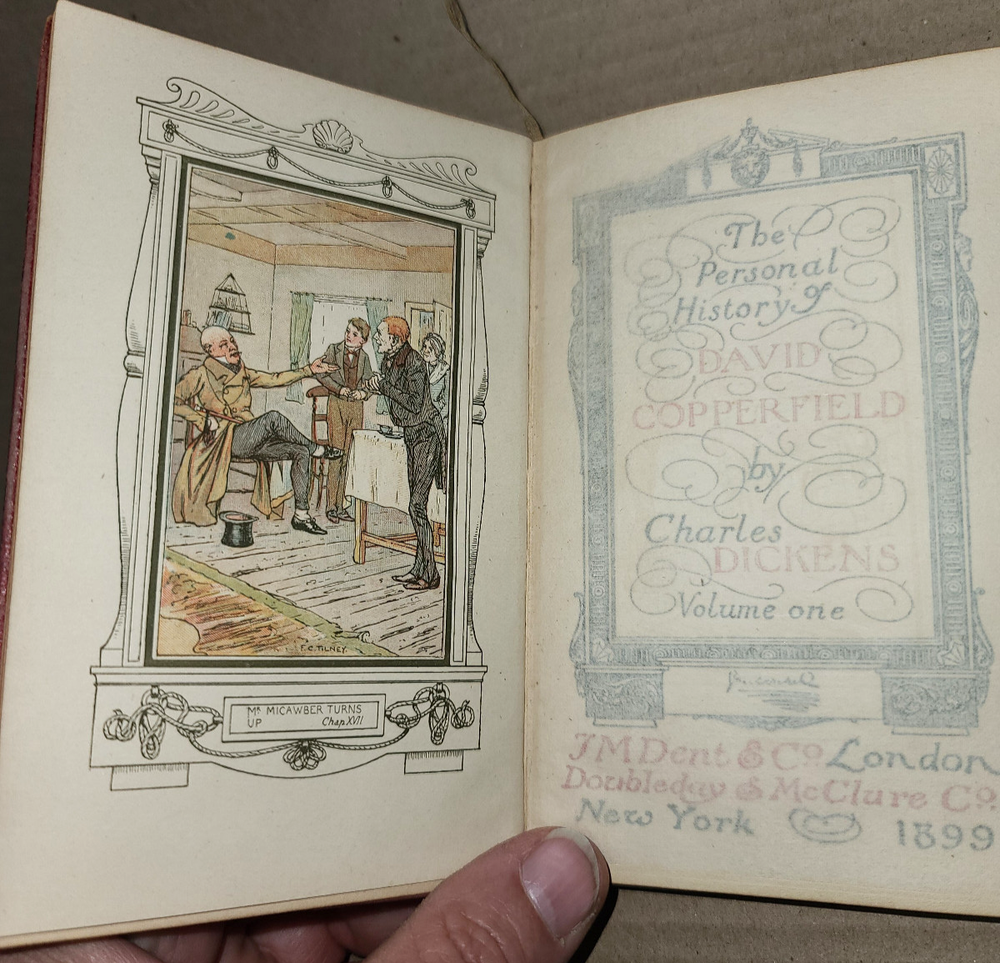 F.C. TILNEY.
MR MICAWBER TURNS
UP Chap XVII
The
Personal
History of
DAVID
COPPERFIELD
by
Charles
DICKENS
Volume one
J M Dent & Co London
Doubleday & McClure Co
New York 1899